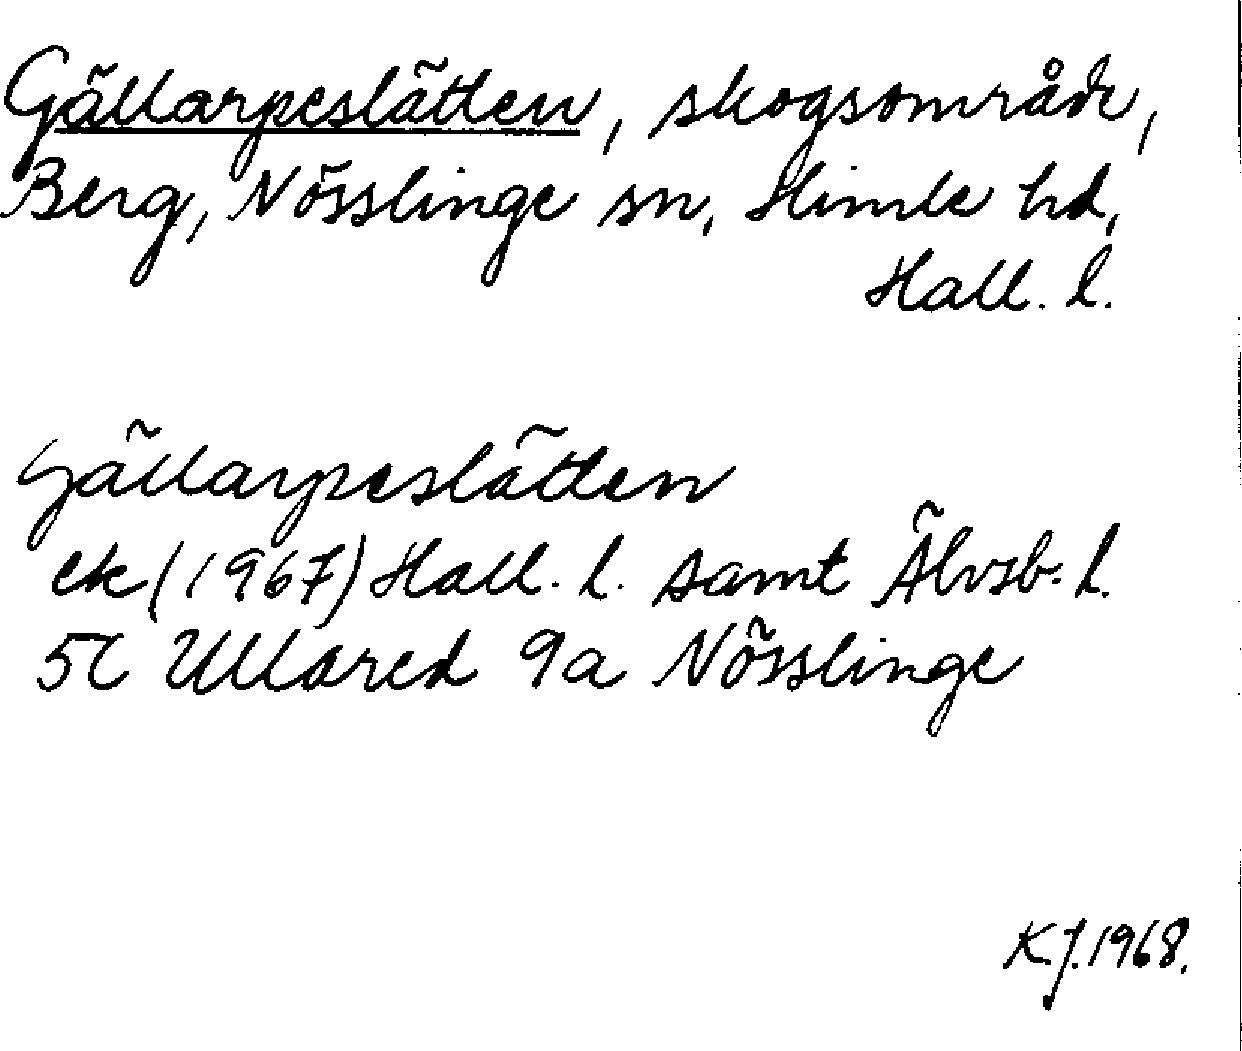 Gällarpeslätten, skogsområde,
Berg, Nösslinge sn, Himle hd,
Hall. l.
Gällarpeslätten
ek (1967) Hall. l. samt Älvsb. l.
5C Ullared 9a Nösslinge
K.J. 1968.